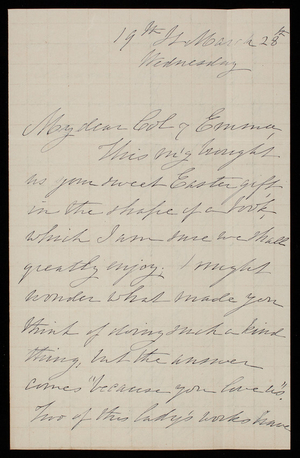 19th St March 28th
Wednesday
My dear Col & Emma,
This m'g brought
us your sweet Easter gift
in the shape of a book
which I am sure we shall
greatly enjoy. I might
wonder what made you
think of doing such a kind
thing, but the answer
comes "because you love us".
Two of this lady's works have